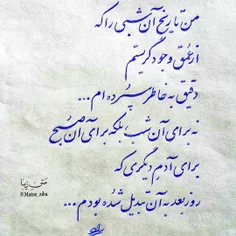 من تاریخ آن شبی را که
از عمق وجود گریستم
دقیق به خاطر سپرده ام...
نه برای آن شب، بلکه برای آن صبح
برای آدم دیگری که
روز بعد به آن تبدیل شده بودم...
متن زیبا
@Matne_ziba